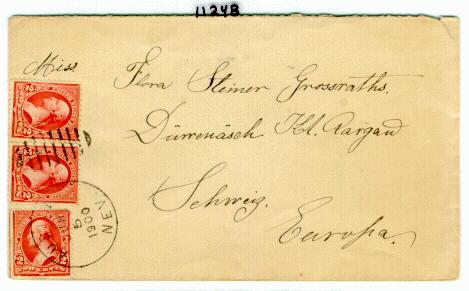 11248
Miss
Flora Steiner Grossraths.
Dürrenäsch Kt. Aargau
Schweiz.
Europa.
NEV.
5
1900
2
2
2